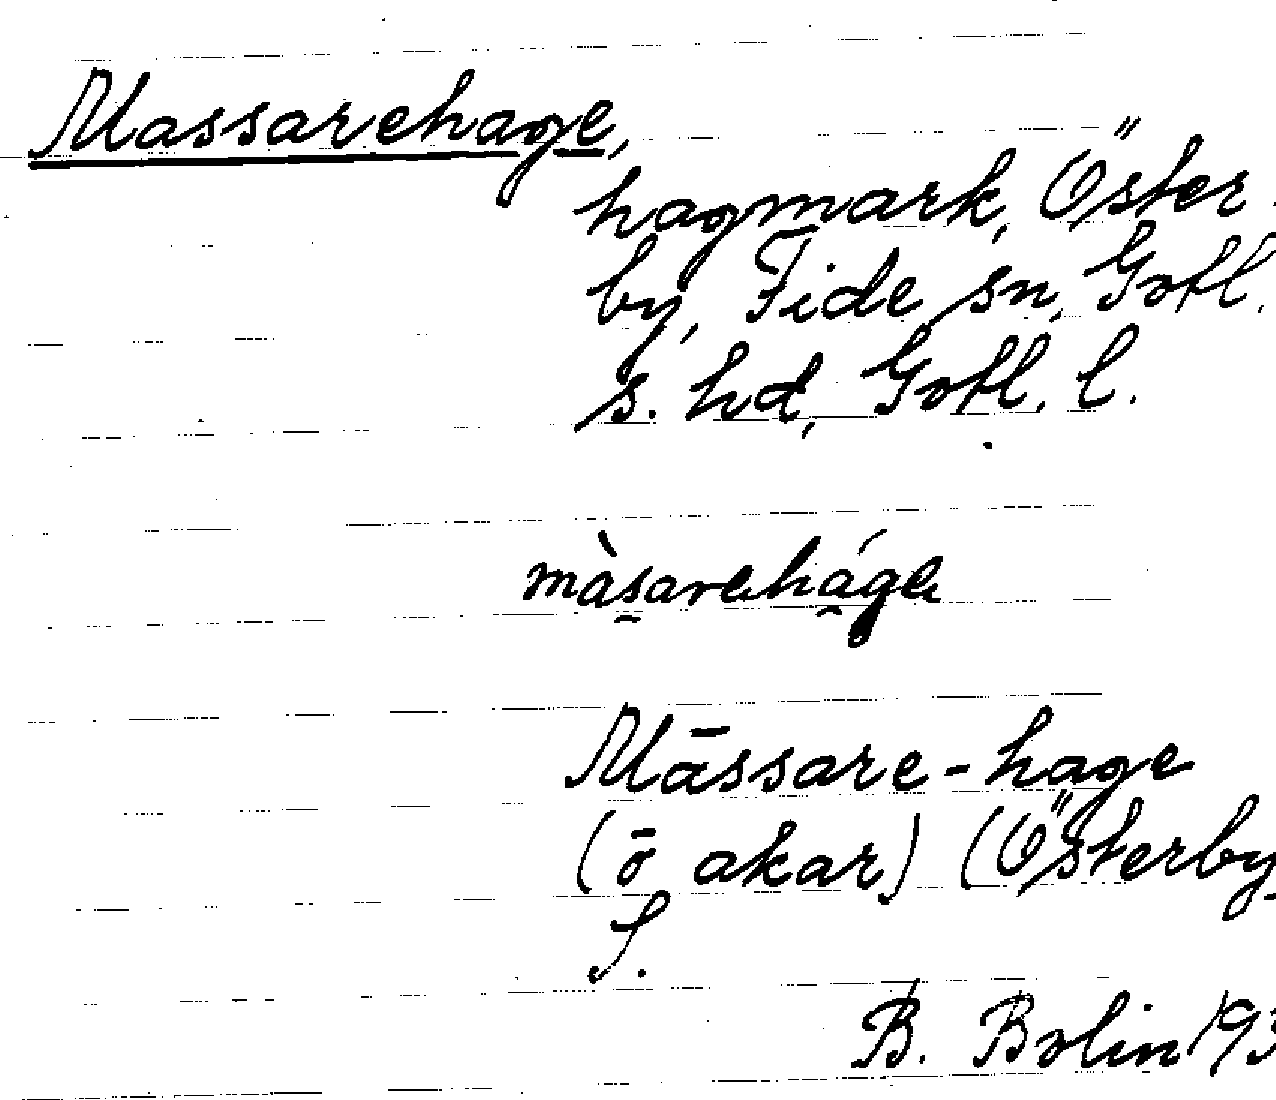 Massarehage,
hagmark, Öster-
by, Fide sn, Gotl.
s. hd, Gotl. l.
màsarehága
Māssare-hage
(ō akar) (Österby,
S.
B. Bolin 193